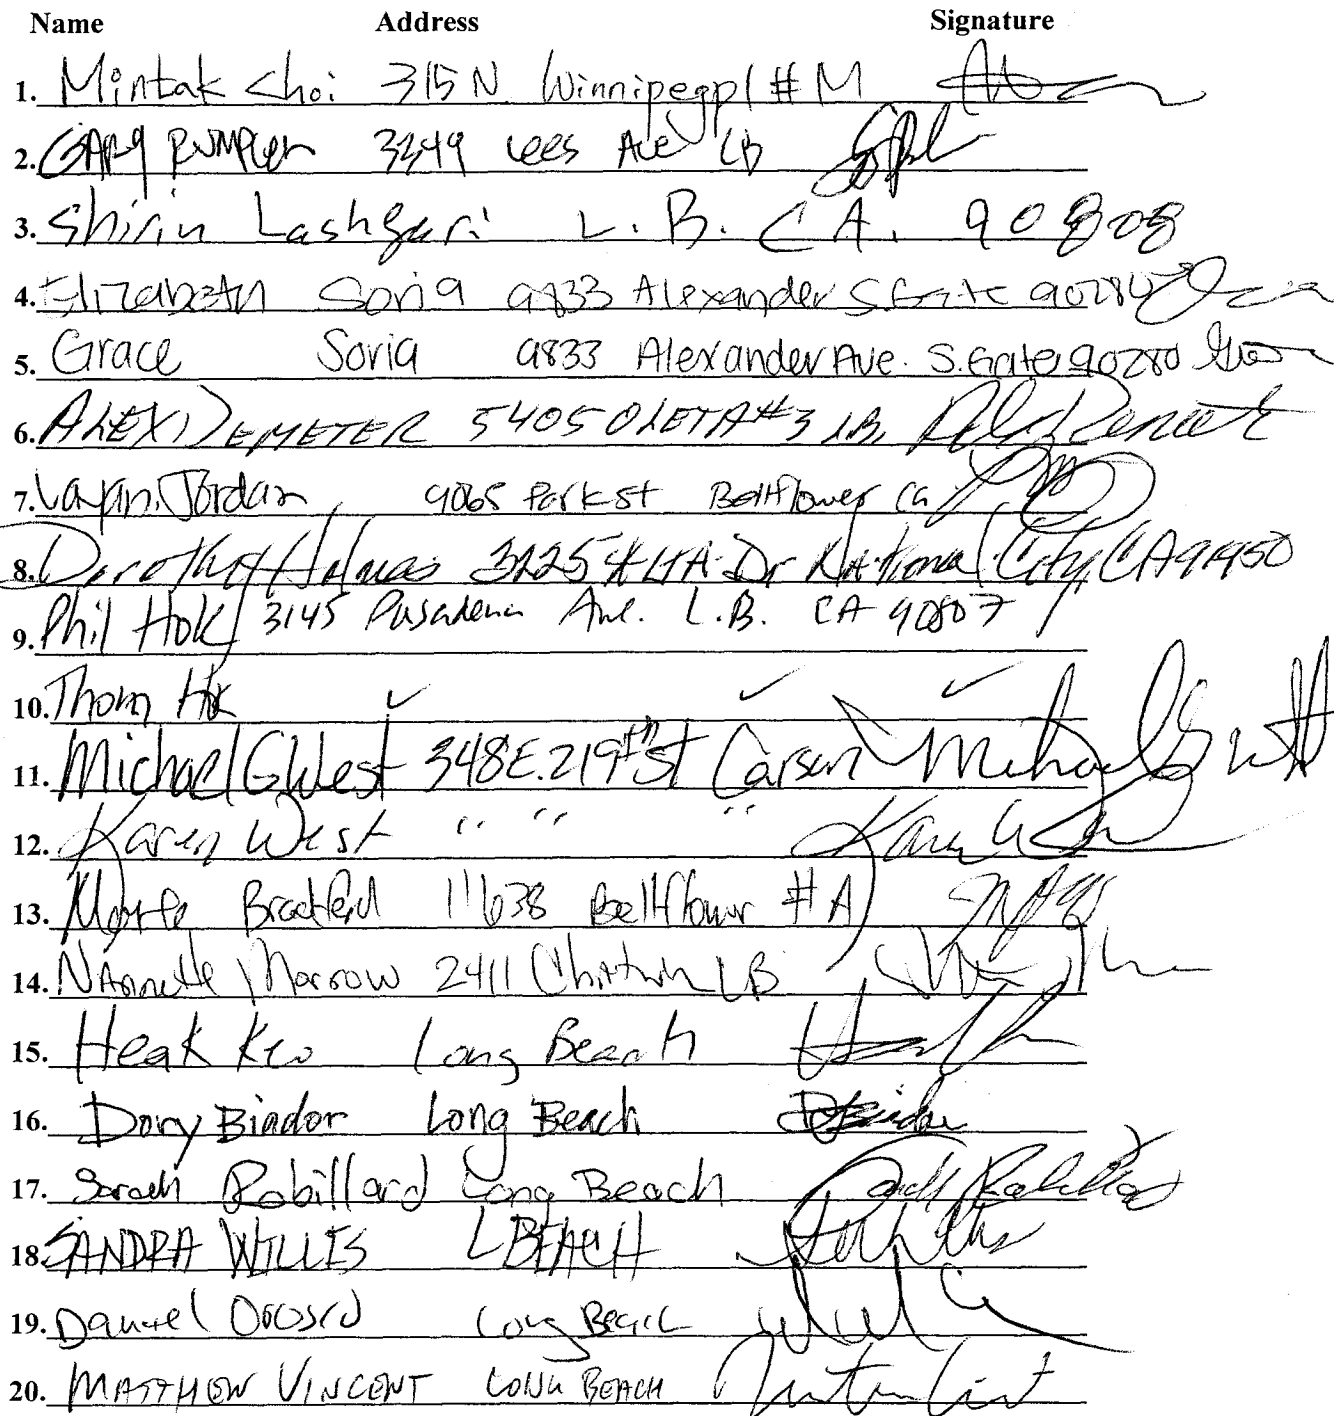 Name Address Signature
1. Mintak Choi 315 N Winnipeg pl # M
2. GARY RUMPLER 3249 Lees Ave LB
3. Shirin Lashgari L.B. CA. 90808
4. Elizabeth Soria 9833 Alexander S. Gate 90280
5. Grace Soria 9833 Alexander Ave. S. Gate 90280
6. ALEXI DEMETER 5405 OLETA #3 LB,
7. Jordan, 9065 Park st Bellflower ca
8. Dorothy Holmes Dr National City, CA 91950
9. Phil Hok 3145 Pasadena Ave. L.B. CA 90807
10. Thom Hok ✓ ✓ ✓
11. Michael G West 348 E. 219th St Carson
12. Karen West " " " Karen West
13. Bradford 11638 Bellflower # A
14. Nannette Morrow 2411 LB
15. Heak Keo Long Beach
16. Dory Biador Long Beach
17. Sarach Robillard Long Beach
18. SANDRA WILLIS L BEACH
19. Daniel Long Beach
20. MATTHEW VINCENT LONG BEACH